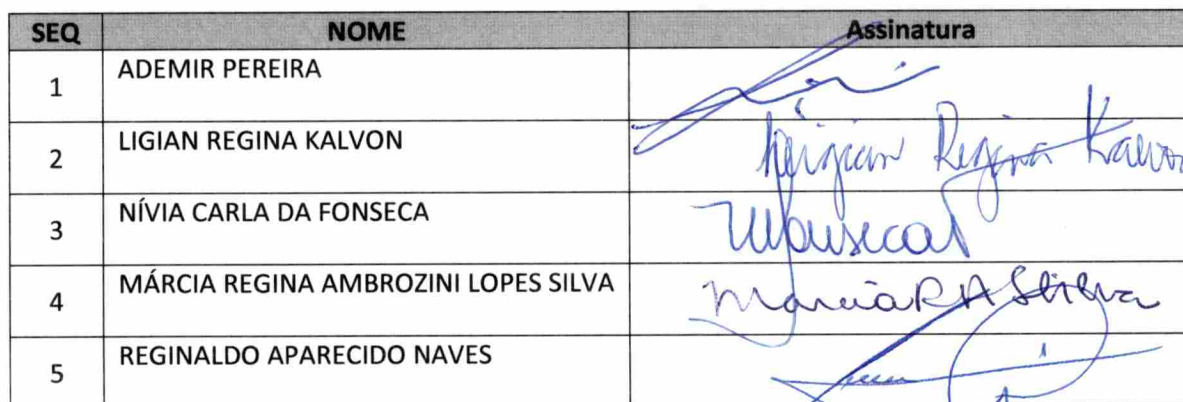 SEQ NOME Assinatura
1 ADEMIR PEREIRA
2 LIGIAN REGINA KALVON Ligian Regina Kalvon
3 NÍVIA CARLA DA FONSECA
4 MÁRCIA REGINA AMBROZINI LOPES SILVA Marcia R A Silva
5 REGINALDO APARECIDO NAVES